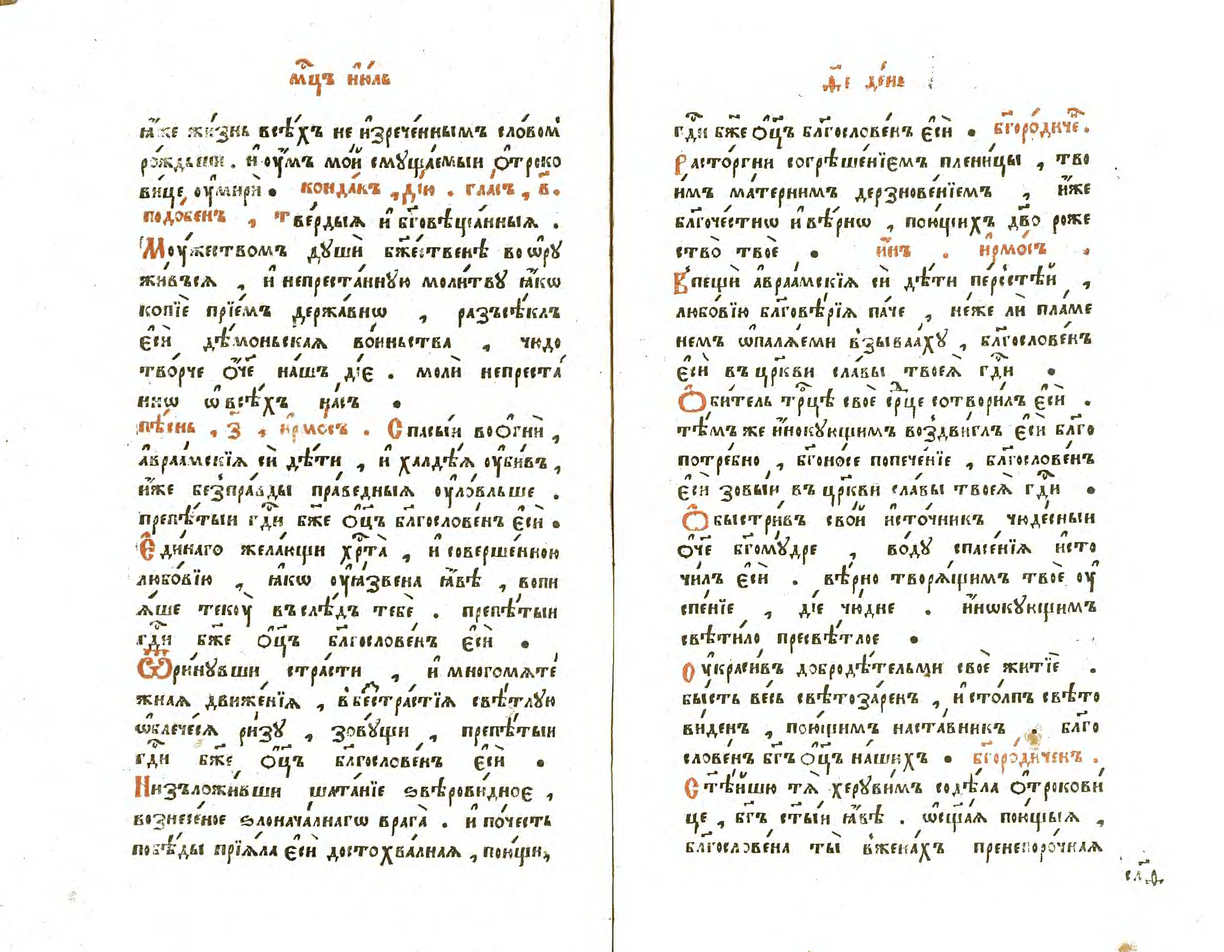 мⷭ҇цъ і҆ю́ль
ꙗ҆́же жи́знь всѣ́хъ не и҆зрече́ннымъ сло́вомъ
ро́ждьши . и҆ ᲂу҆́мъ мо́й смꙋща́емыи ѻ҆́троко
ви́це ᲂу҆мирѝ • конда́къ , дїю . гла́съ , в҃.
подо́бенъ , тве́рдыѧ и҆ бг҃овѣща́нныѧ .
Моу́жествомъ дꙋшѝ бж҃е́ственѣ во ѡ҆рꙋ
жи́всѧ , и҆ непреста́ннꙋю моли́твꙋ ꙗ҆́кѡ
копїѐ прїе́мъ держа́внѡ , разъсѣ́клъ
є҆сѝ де́моньскаѧ во́иньства , чю́до
тво́рче ѻ҆́ч҃е на́шъ дїе . молѝ непреста́
ннѡ ѡ҆ всѣ́хъ на́съ •
пѣ́снь , з҃ , і҆рмо́съ . Спасы́и во ѻ҆гнѝ ,
а҆враа́мскїѧ сѝ дѣ́ти , и҆ халдѣ́ѧ ᲂу҆би́въ ,
и҆́же безпра́вды пра́ведныѧ ᲂу҆ловльше .
препѣ́тыи гд҇и бж҃е ѻ҆ц҃ъ блг҃ослове́нъ є҆сѝ •
Є҆ди́наго жела́ющи хрⷭ҇та̀ , и҆ соверше́нною
любо́вїю , ꙗ҆́кѡ ᲂу҆ꙗ́звена ꙗ҆́вѣ , вопи
ѧ́ше текоу̀ въ слѣ́дъ тебѐ . препѣ́тыи
гд҇и бж҃е ѻ҆ц҃ъ блг҃ослове́нъ є҆сѝ •
Ѿри́нꙋвши стра́сти , и҆ многомѧте́
жнаѧ движе́нїѧ , в бестра́стїѧ свѣ́тлꙋю
ѡ҆блече́сѧ ри́зꙋ , зовꙋ́щи , препѣ́тыи
гд҇и бж҃е ѻ҆ц҃ъ блг҃ослове́нъ є҆сѝ •
Низъложи́вши шата́нїе ѕвѣрови́дное ,
вознесе́ное ѕлонача́лнагѡ врага̀ . и҆ по́честь
побѣ́ды прїѧ́ла є҆сѝ достохва́лнаѧ , пою́щи,
де де́нь
гд҇и бж҃е ѻ҆ц҃ъ блг҃ослове́нъ є҆сѝ • бг҃оро́диче .
Расто́ргни согрѣше́нїемъ плени́цы , тво
и́мъ ма́тернимъ дерзнове́нїемъ , и҆́же
благоче́стнѡ и҆ вѣ́рнѡ , пою́щихъ дв҃о роже
ство̀ твоѐ • и҆́нъ . і҆рмо́съ .
В пещѝ а҆враа́мскїѧ сѝ дѣ́ти пе́рсстѣй ,
любо́вїю благовѣ́рїѧ па́че , не́же ли пла́ме
немъ ѡ҆палѧ́еми взыва́ахꙋ , блг҃ослове́нъ
є҆сѝ въ цр҃кви сла́вы твоеѧ̀ гд҇и •
Ѻ҆би́тель трⷪ҇цѣ своѐ ср҃це сотвори́лъ є҆сѝ .
тѣ́мъ же и҆но́кꙋющимъ воздви́глъ є҆сѝ благо
потре́бно , бг҃оно́се попече́нїе , блг҃ослове́нъ
є҆сѝ зовы́и въ цр҃кви сла́вы твоеѧ̀ гд҇и •
Ѻ҆быстри́въ сво́й и҆сто́чникъ чюде́сныи
ѻ҆́ч҃е бг҃омꙋ́дре , во́дꙋ спасе́нїѧ и҆сто
чи́лъ є҆сѝ . вѣ́рно творѧ́щимъ твоѐ ᲂу҆
спе́нїе , дїе чю́дне . и҆́нѡкꙋющимъ
свѣти́ло пресвѣ́тлое •
Оу҆краси́въ добродѣ́тельми своѐ житїѐ .
бы́сть ве́сь свѣтоза́ренъ , и҆ сто́лпъ свѣто
ви́денъ , пою́щимъ наста́вникъ . благо
слове́нъ бг҃ъ ѻ҆ц҃ъ на́шихъ • бг҃оро́диченъ .
Стѣ́йшю тѧ̀ херꙋви́мъ содѣ́ла ѻ҆трокови́
це , бг҃ъ ст҃ы́й ꙗ҆́вѣ . ѡ҆сщ҃а́ѧ пою́щыѧ ,
благослове́на ты̀ в жена́хъ пренепоро́чнаѧ
сла҃.ѳ.